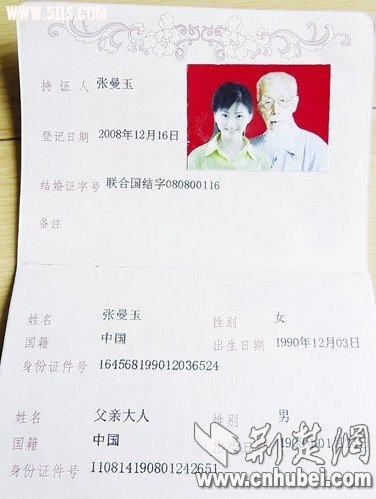 www.5ILS.com
持证人 张曼玉
登记日期 2008年12月16日
结婚证字号 联合国结字080800116
备注
姓名 张曼玉 性别 女
国籍 中国 出生日期 1990年12月03日
身份证件号 164568199012036524
姓名 父亲大人 性别 男
国籍 中国
身份证件号 110814190801242651
荆楚网
www.cnhubei.com